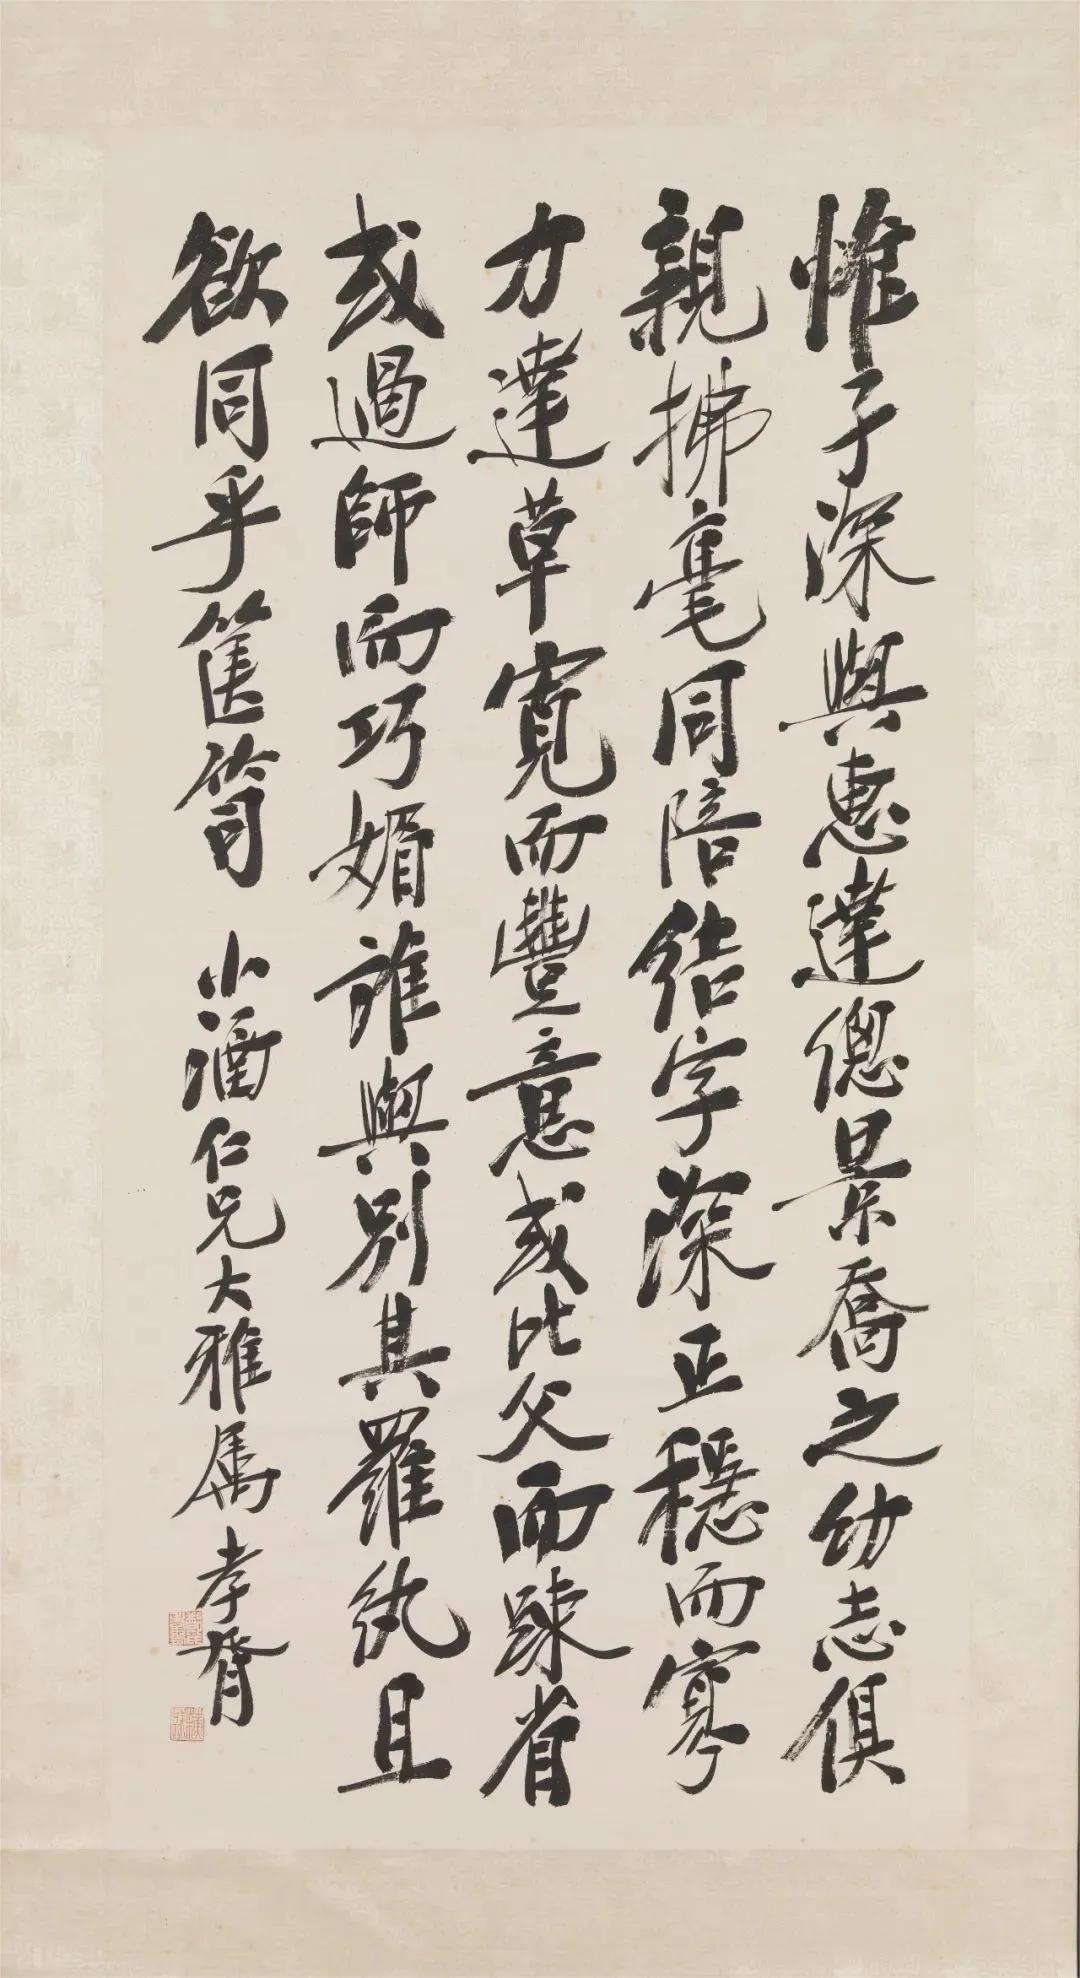 惟子深與惠達傯景喬之幼志俱
親拂毫同陪結字深正穩而寡
力達草寬而豐意或比父而踈省
或過師而巧媚誰與別其羅紈且
欲同乎篋笥 小仁兄大雅属 孝胥